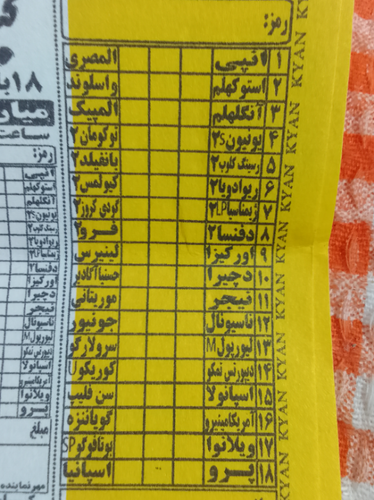 رمز:
۱ انپی المصری
۲ استوکهلم واسلوند
۳ آنگلهلم المپیک
۴ یونیونS۲ توکومان۲
۵ رسینگ کلوب۲ بانفیلد۲
۶ ریوادویا۲ کیولمس۲
۷ ژیمناسیاLP۲ گودی کروز۲
۸ دفنسا۲ فرو۲
۹ اورکیزا لینیرس
۱۰ دچیرا حسنیا آگادیر
۱۱ نیجر موریتانی
۱۲ ناسیونال جونیور
۱۳ لیورپولM سرولارگو
۱۴ دپورتس تمکو کوریکوU
۱۵ اسپانولا سن فلیپ
۱۶ آمریکامینیرو گویاننزه
۱۷ ویلانوا بوتافوگوSP
۱۸ پرو اسپانیا
KYAN KYAN KYAN KYAN KYAN KYAN KYAN KYAN
۱۸
ساعت
رمز:
انپی
استوکهلم
آنگلهلم
یونیونS۲
رسینگ کلوب۲
ریوادویا۲
ژیمناسیا۲
دفنسا۲
اورکیزا
دچیرا
نیجر
ناسیونال
لیورپولM
دپورتس تمکو
اسپانولا
آمریکامینیرو
ویلانوا
پرو
مبلغ
مهر نماینده